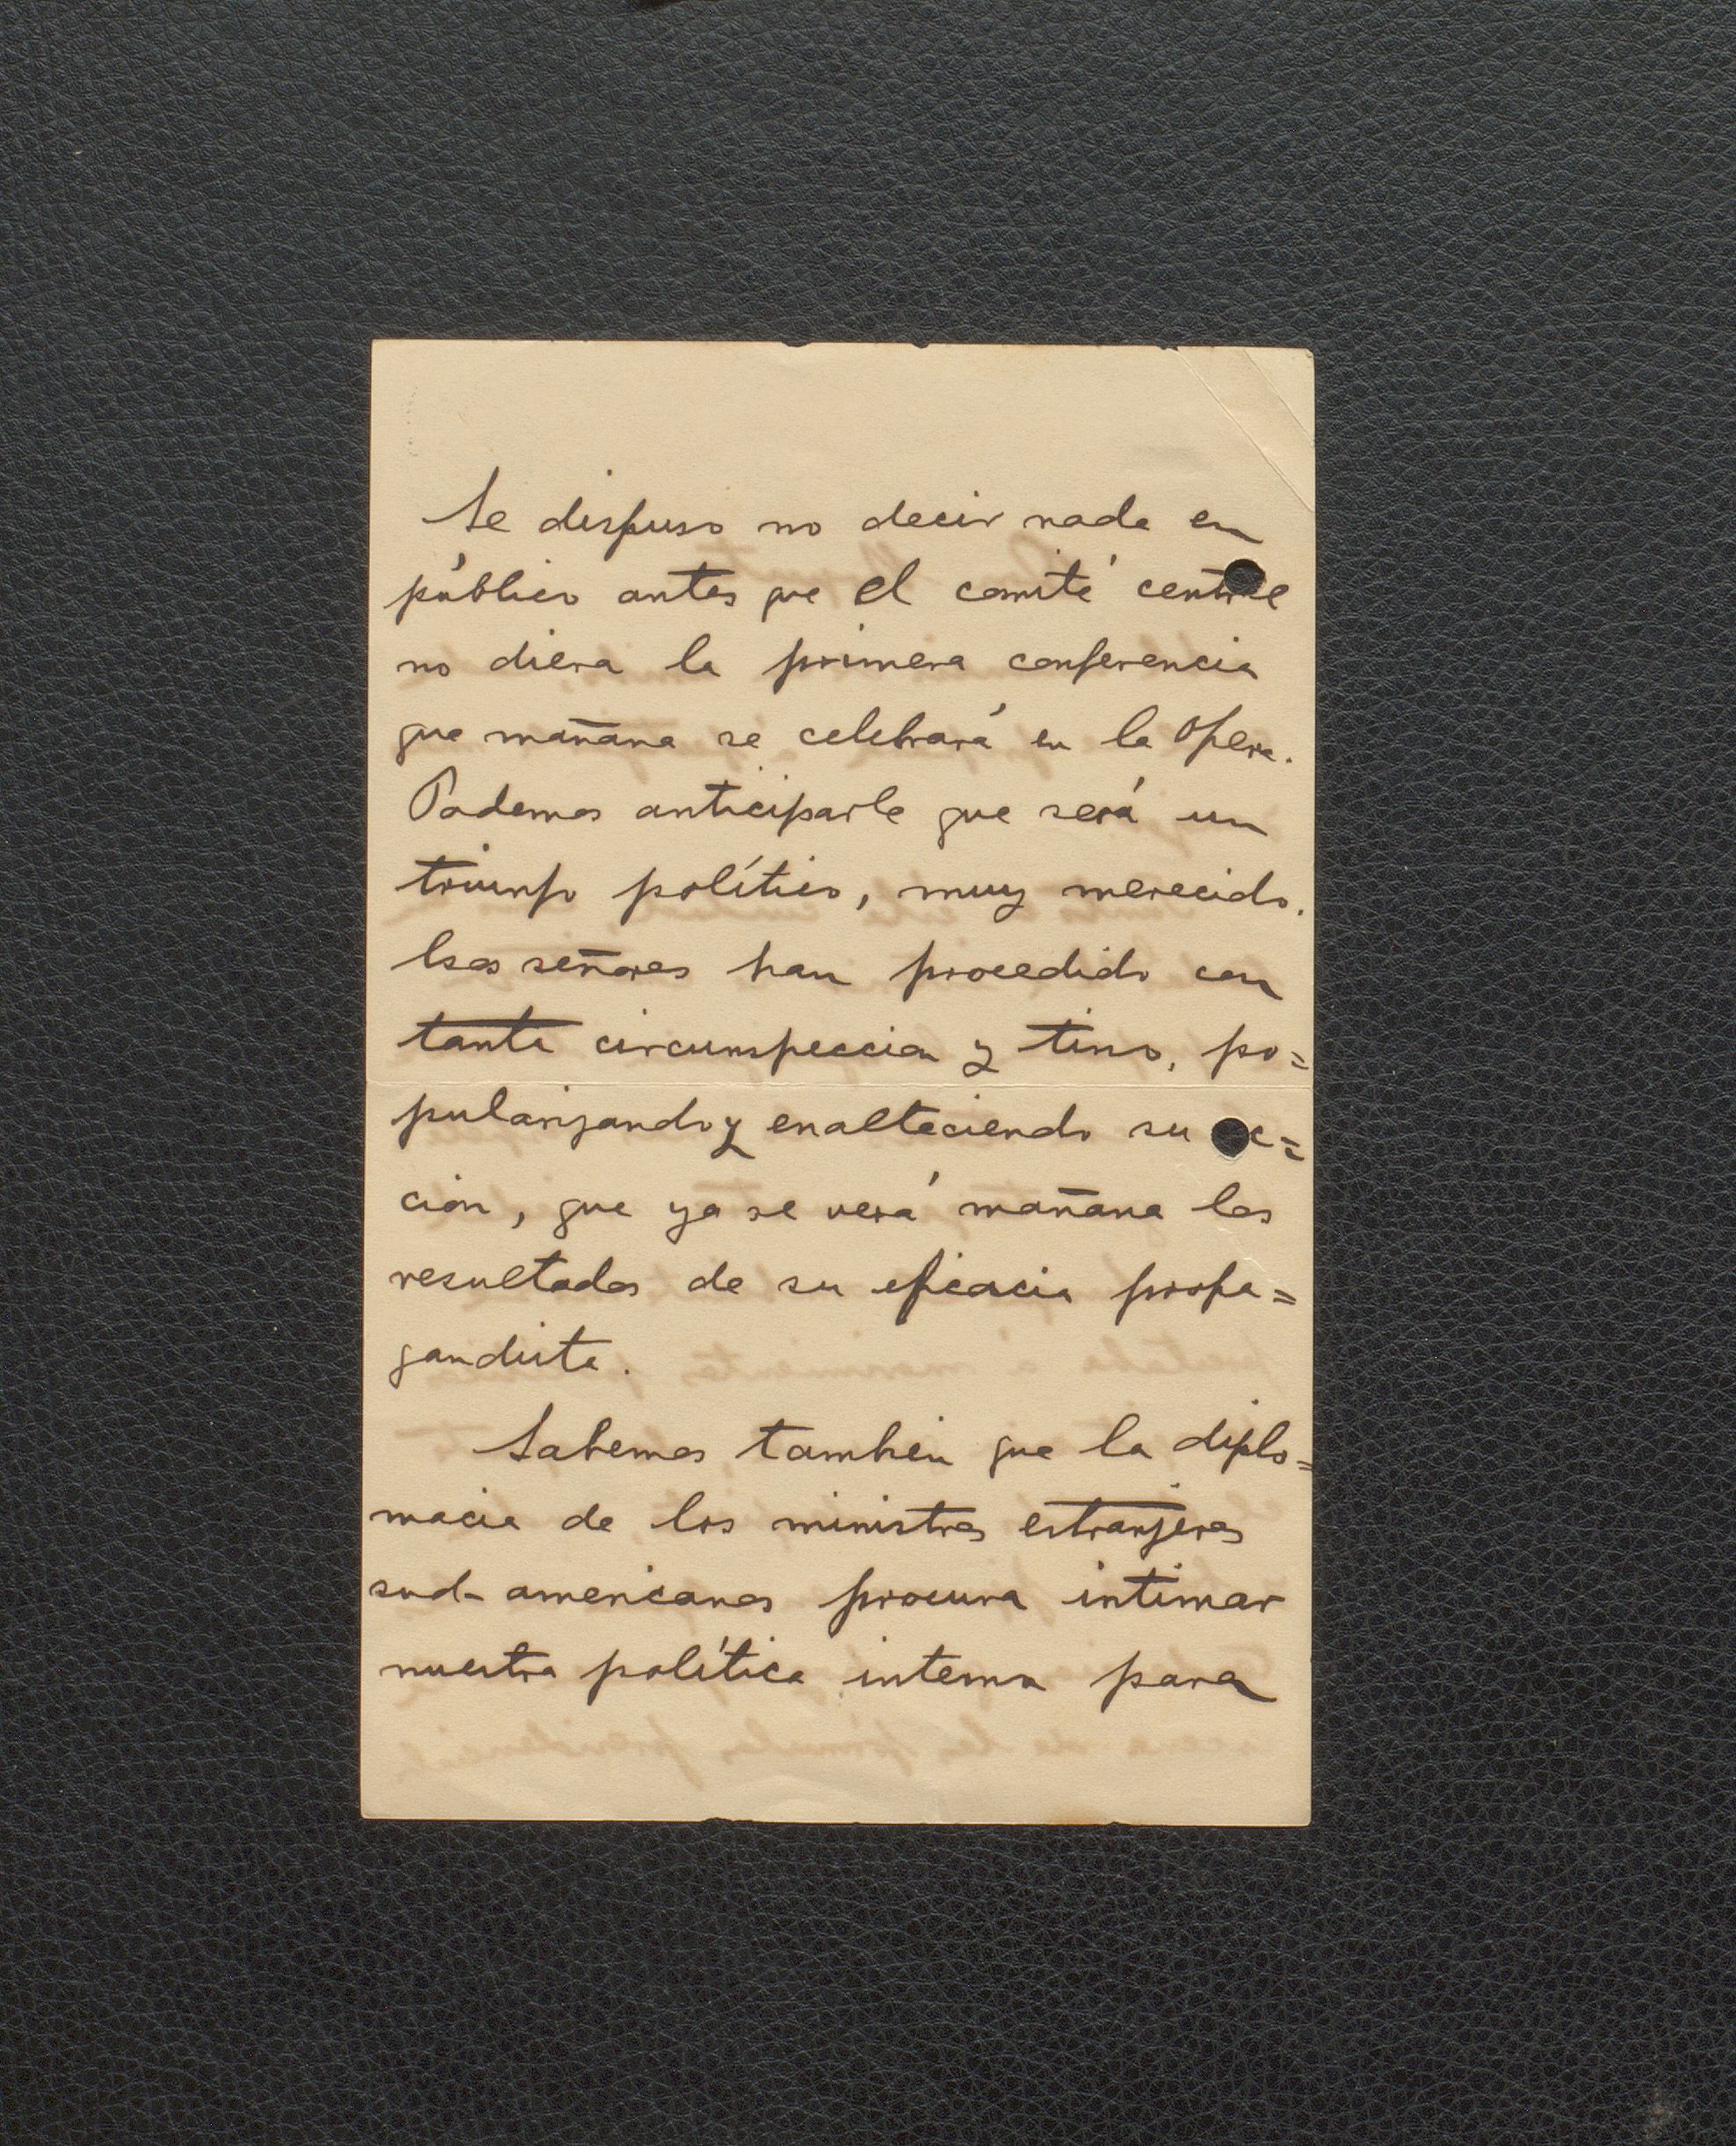 Se dispuso no decir nada en
público antes que el comité central
no diera la primera conferencia
que mañana se celebrará en la Opera.
Podemos anticiparle que será un
triunfo político, muy merecido.
Esos señores han procedido con
tanta circunspeccion y tino, po=
pularizando y enalteciendo su ac=
cion, que ya se verá mañana los
resultados de su eficacia propa=
gandista.
Sabemos tambien que la diplo=
macia de los ministros estranjeros
sud-americanos procura intimar
nuestra política interna para